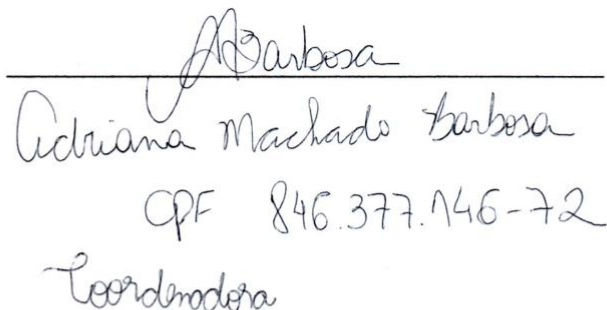 ABarbosa
Adriana Machado Barbosa
CPF 846.377.146-72
Coordenadora